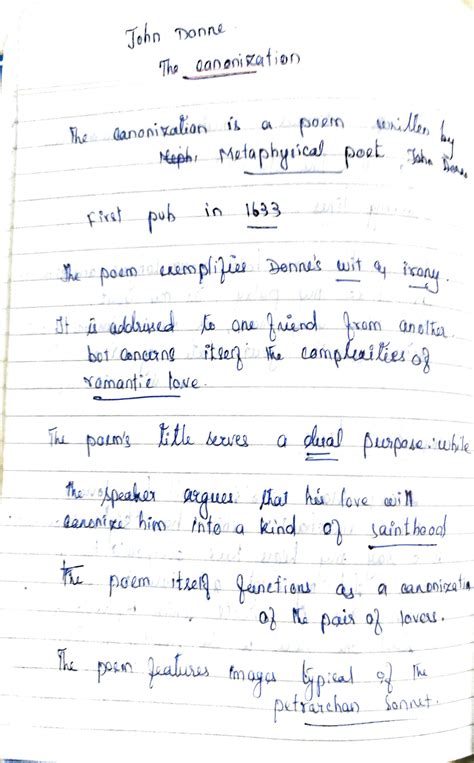 John Donne
The canonization
The canonization is a poem written by
Metaphysical poet, John Donne
First pub in 1633
The poem exemplifies Donne's wit & irony.
It is addrissed to one friend from another
bot concerns itself the complexities of
romantic love.
The poem's title serves a dual purpose: while
the speaker argues that his love will
canonize him into a kind of sainthood
the poem itself functions as a canonization
of the pair of lovers.
The poem features images typical of the
petrarchan sonnet.